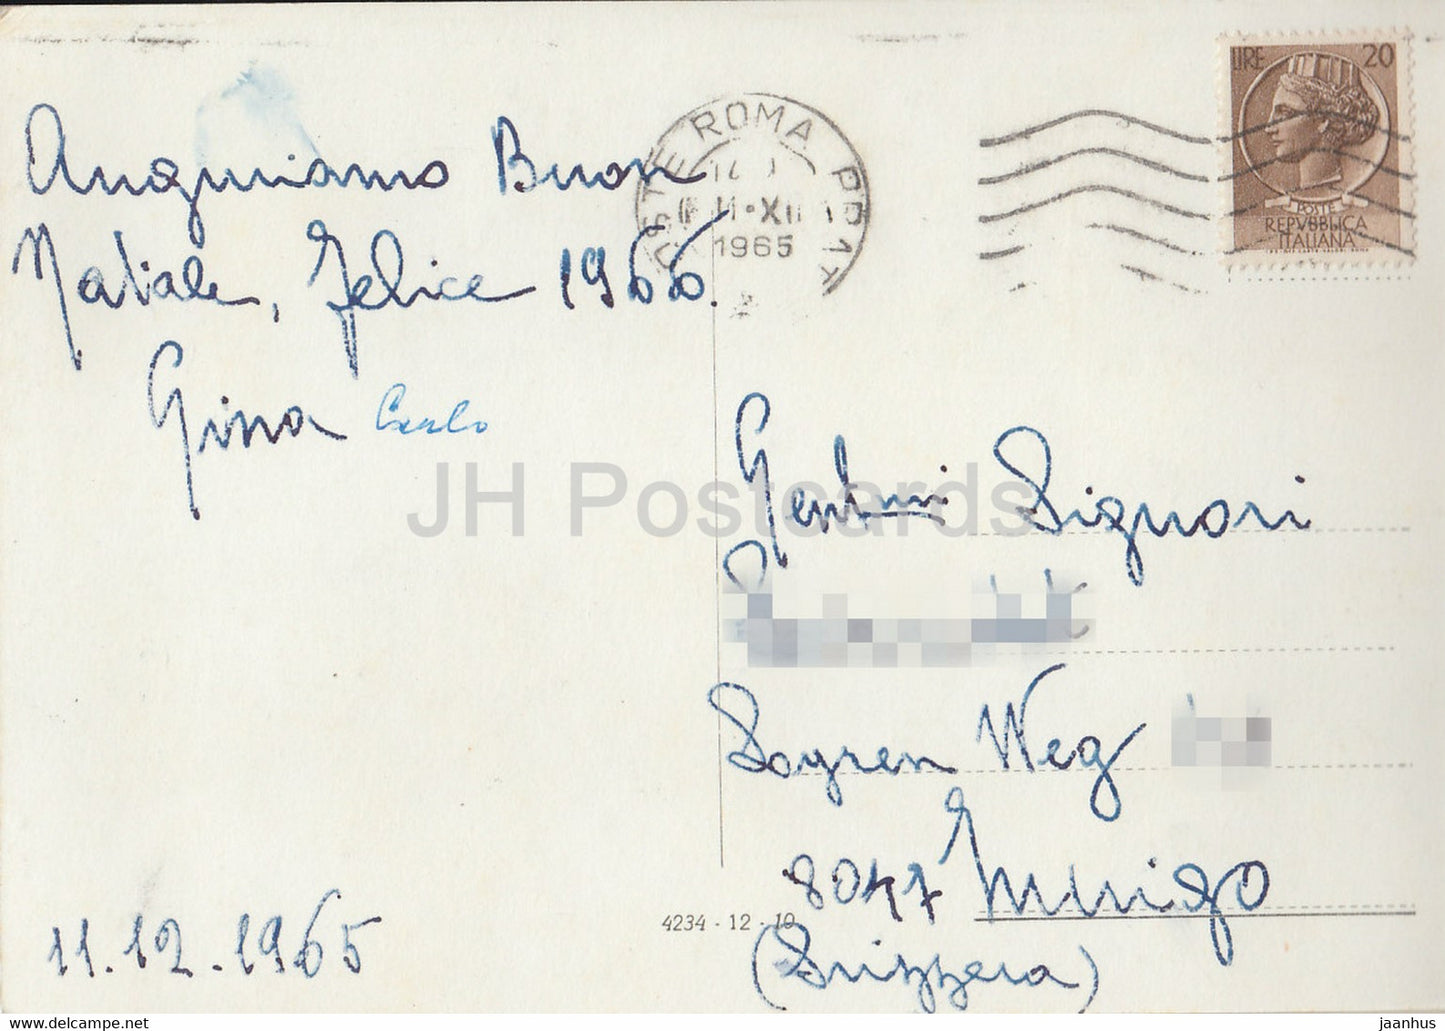 Auguriamo Buon
Natale, Felice 1966.
Gina Carlo
11.12.1965
POSTE ROMA
11•XII
1965
LIRE 20
POSTE
REPVBBLICA
ITALIANA
Gentmi Signori
Weg
8047 Zurigo
(Svizzera)
4234 - 12 - 10
JH Postcards
delcampe.net
jaanhus